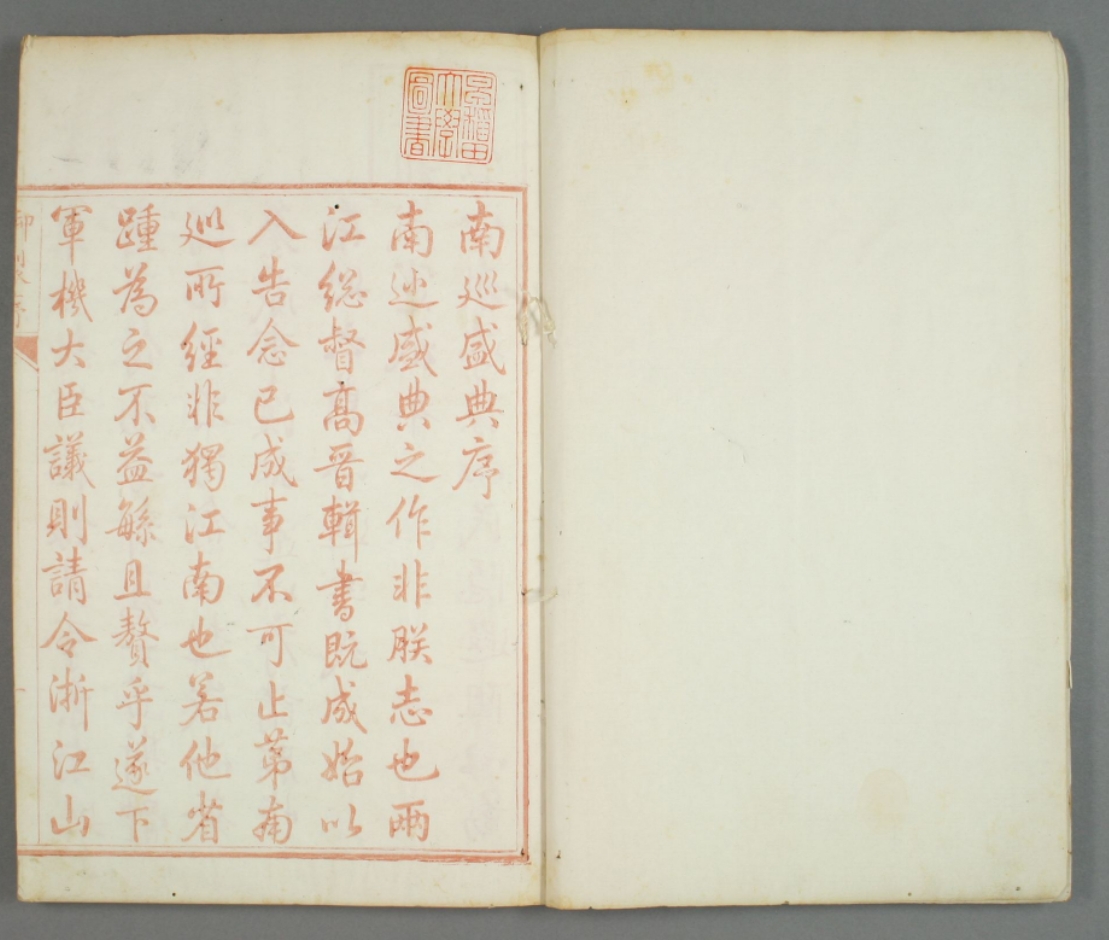 早稻田
大學
圖書
南廵盛典序
南廵盛典之作非朕志也兩
江總督髙晉輯書既成始以
入告念已成事不可止苐南
廵所經非獨江南也若他省
踵為之不益緐且贅乎遂下
軍機大臣議則請令浙江山
御製序